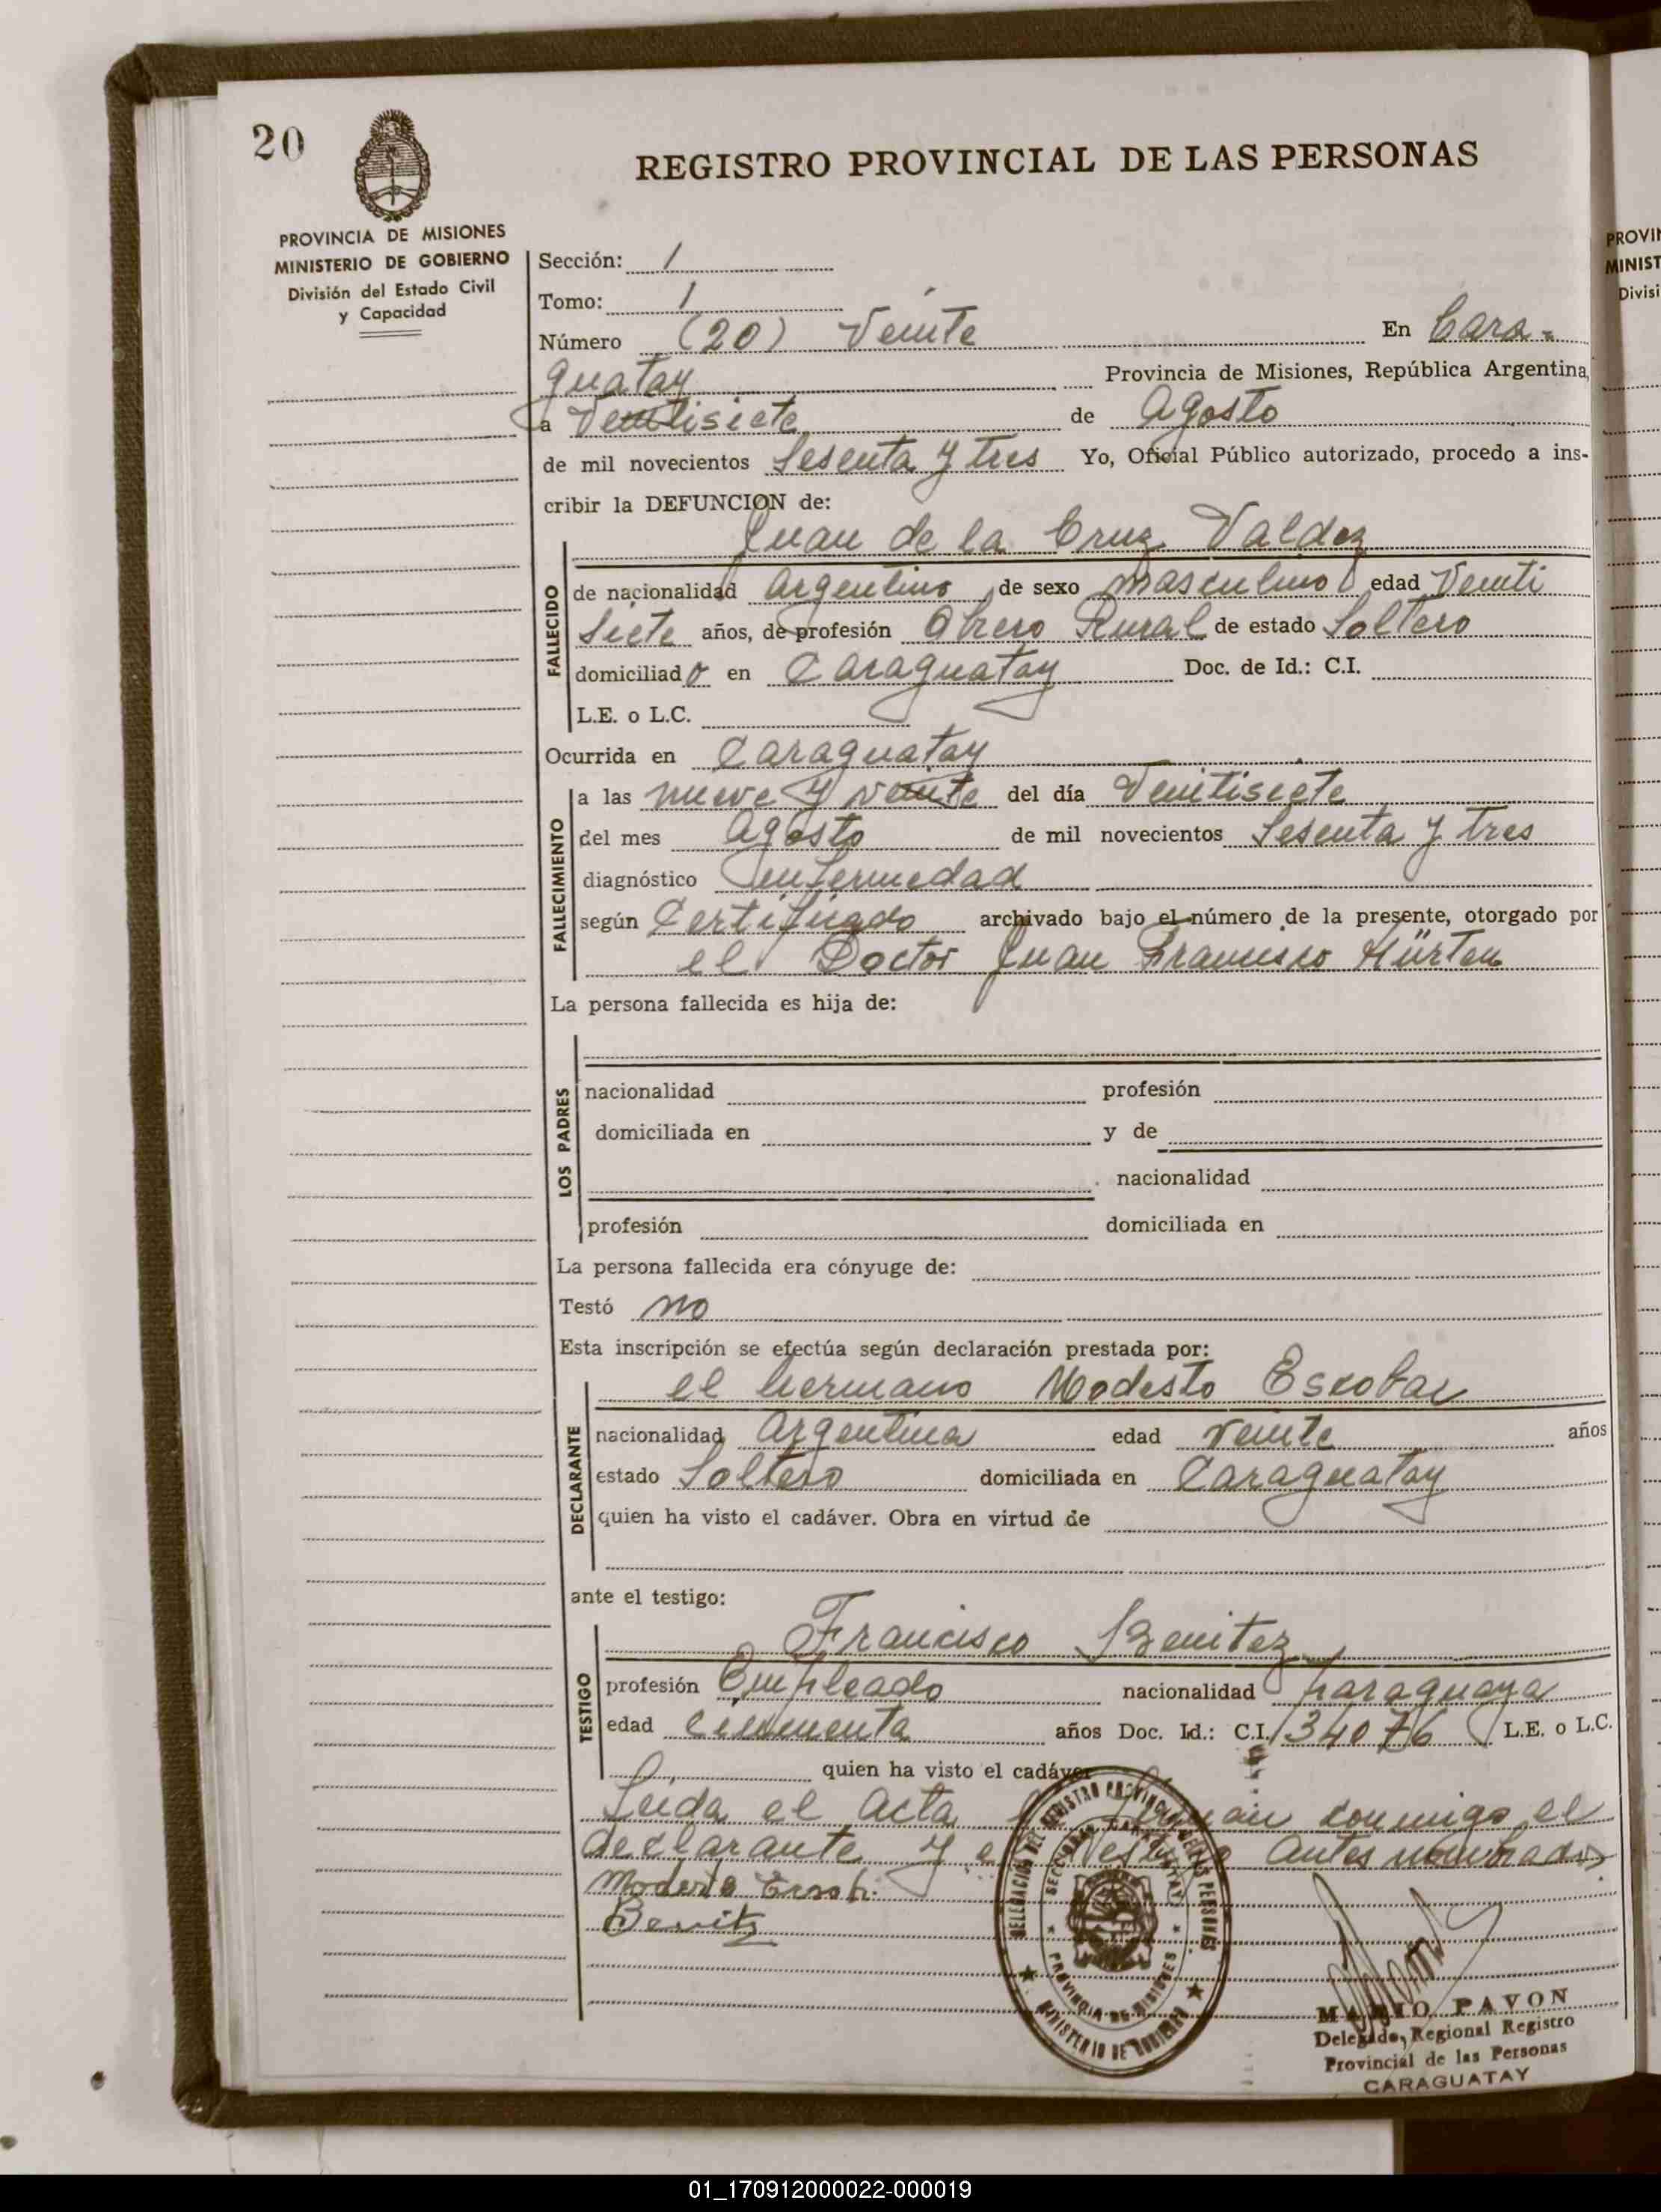 20
REGISTRO PROVINCIAL DE LAS PERSONAS
PROVINCIA DE MISIONES
MINISTERIO DE GOBIERNO
División del Estado Civil
y Capacidad
Sección: 1
Tomo: 1
Número (20) Veinte En Cara-
guatay Provincia de Misiones, República Argentina,
a Veintisiete de Agosto
de mil novecientos Sesenta y tres Yo, Oficial Público autorizado, procedo a ins-
cribir la DEFUNCION de:
Juan de la Cruz Valdez
FALLECIDO
de nacionalidad Argentino de sexo masculino edad Veinti
Siete años, de profesión Obrero Rural de estado Soltero
domiciliado en Caraguatay Doc. de Id.: C.I.
L.E. o L.C.
Ocurrida en Caraguatay
FALLECIMIENTO
a las nueve y veinte del día Veintisiete
del mes Agosto de mil novecientos Sesenta y tres
diagnóstico enfermedad
según Certificado archivado bajo el número de la presente, otorgado por
el Doctor Juan Francisco Hürten
La persona fallecida es hija de:
LOS PADRES
nacionalidad profesión
domiciliada en y de
nacionalidad
profesión domiciliada en
La persona fallecida era cónyuge de:
Testó no
Esta inscripción se efectúa según declaración prestada por:
el hermano Modesto Escobar
DECLARANTE
nacionalidad Argentina edad veinte años
estado Soltero domiciliada en Caraguatay
quien ha visto el cadáver. Obra en virtud de
ante el testigo:
Francisco Benitez
TESTIGO
profesión Empleado nacionalidad paraguaya
edad cincuenta años Doc. Id.: C.I. 134076 L.E. o L.C.
quien ha visto el cadáver
Leida el acta conmigo el
declarante y el Testigo antes nombrados
Modesto
Benitz
DELEGACION DEL REGISTRO PROVINCIAL DE LAS PERSONAS
SECCIONAL CARAGUATAY
PROVINCIA DE MISIONES
MINISTERIO DE GOBIERNO
MARIO PAVON
Delegado, Regional Registro
Provincial de las Personas
CARAGUATAY
PROVIN
MINIST
Divisi
01_170912000022-000019